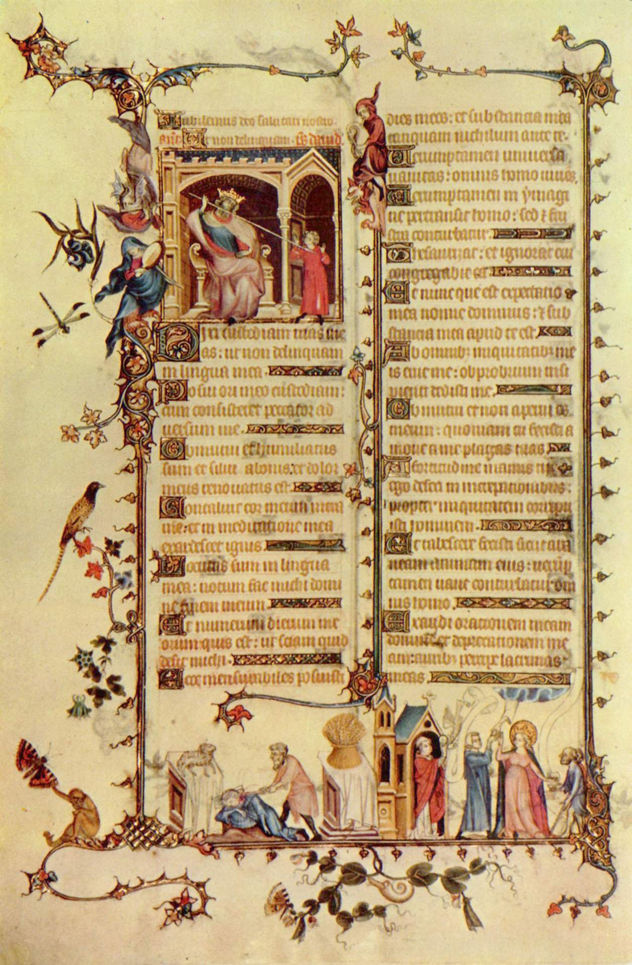 Jubilemus deo salutari nostro.
Ut non delinquam. ps david
Dixi custodiam vias me
as: ut non delinquam
in lingua mea
Posui ori meo custodiam:
cum consisteret peccator ad
versum me.
Obmutui et humiliatus
sum et silui a bonis: et dolor
meus renovatus est
Concaluit cor meum intra
me: et in meditatione mea
exardescet ignis
Locutus sum in lingua
mea: notum fac michi domi
ne finem meum
Et numerum dierum me
orum quis est: ut sciam quid
desit michi
Ecce mensurabiles posuisti
dies meos: et substancia mea
tanquam nichilum ante te.
Verumptamen universa
vanitas: omnis homo vivens
Verumptamen in ymagi
ne pertransit homo: sed et frus
tra conturbatur
Thesaurizat: et ignorat cui
congregabit ea
Et nunc que est expectatio
mea nonne dominus: et sub
stancia mea apud te est
Ab omnibus iniquitatibus me
is erue me: obprobrium insi
pienti dedisti me
Obmutui et non aperui os
meum: quoniam tu fecisti a
move a me plagas tuas
A fortitudine manus tue
ego defeci in increpationibus:
propter iniquitatem corripu
isti hominem
Et tabescere fecisti sicut ara
neam animam eius: verump
tamen vane conturbatur om
nis homo
Exaudi orationem meam
domine et deprecationem me
am: auribus percipe lacrimas
meas